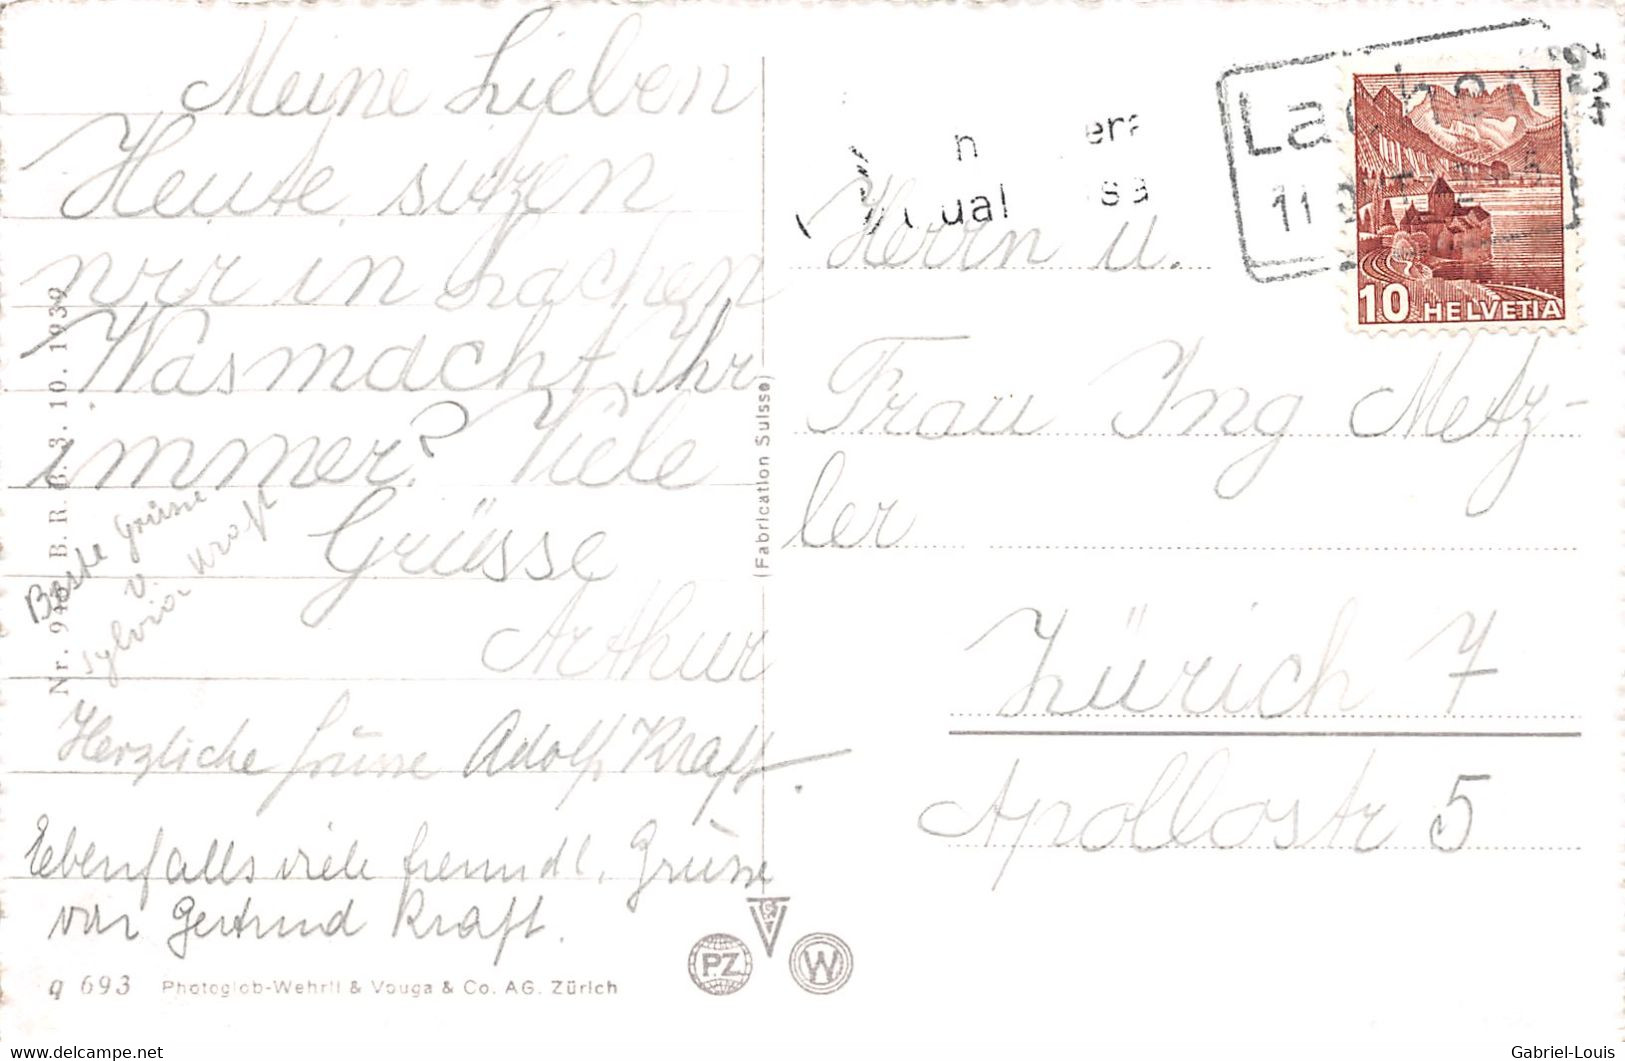 Meine Lieben
Heute sitzen
wir in Lachen
Was macht Ihr
immer? Viele
Grüsse
Arthur
Beste Grüsse
v.
Sylvia Kraft
Herzliche Grüsse Adolf Kraft.
Ebenfalls viele freundl. Grüsse
von Gertrud Kraft.
Nr. B. R. B. 3. 10. 1939
q 693 Photoglob-Wehrli & Vouga & Co. AG. Zürich
(Fabrication Suisse)
PZ
W
Lachen
11
10 HELVETIA
Herrn u.
Frau Ing Metz-
ler
Zürich 7
Apollostr 5
www.delcampe.net
Gabriel-Louis